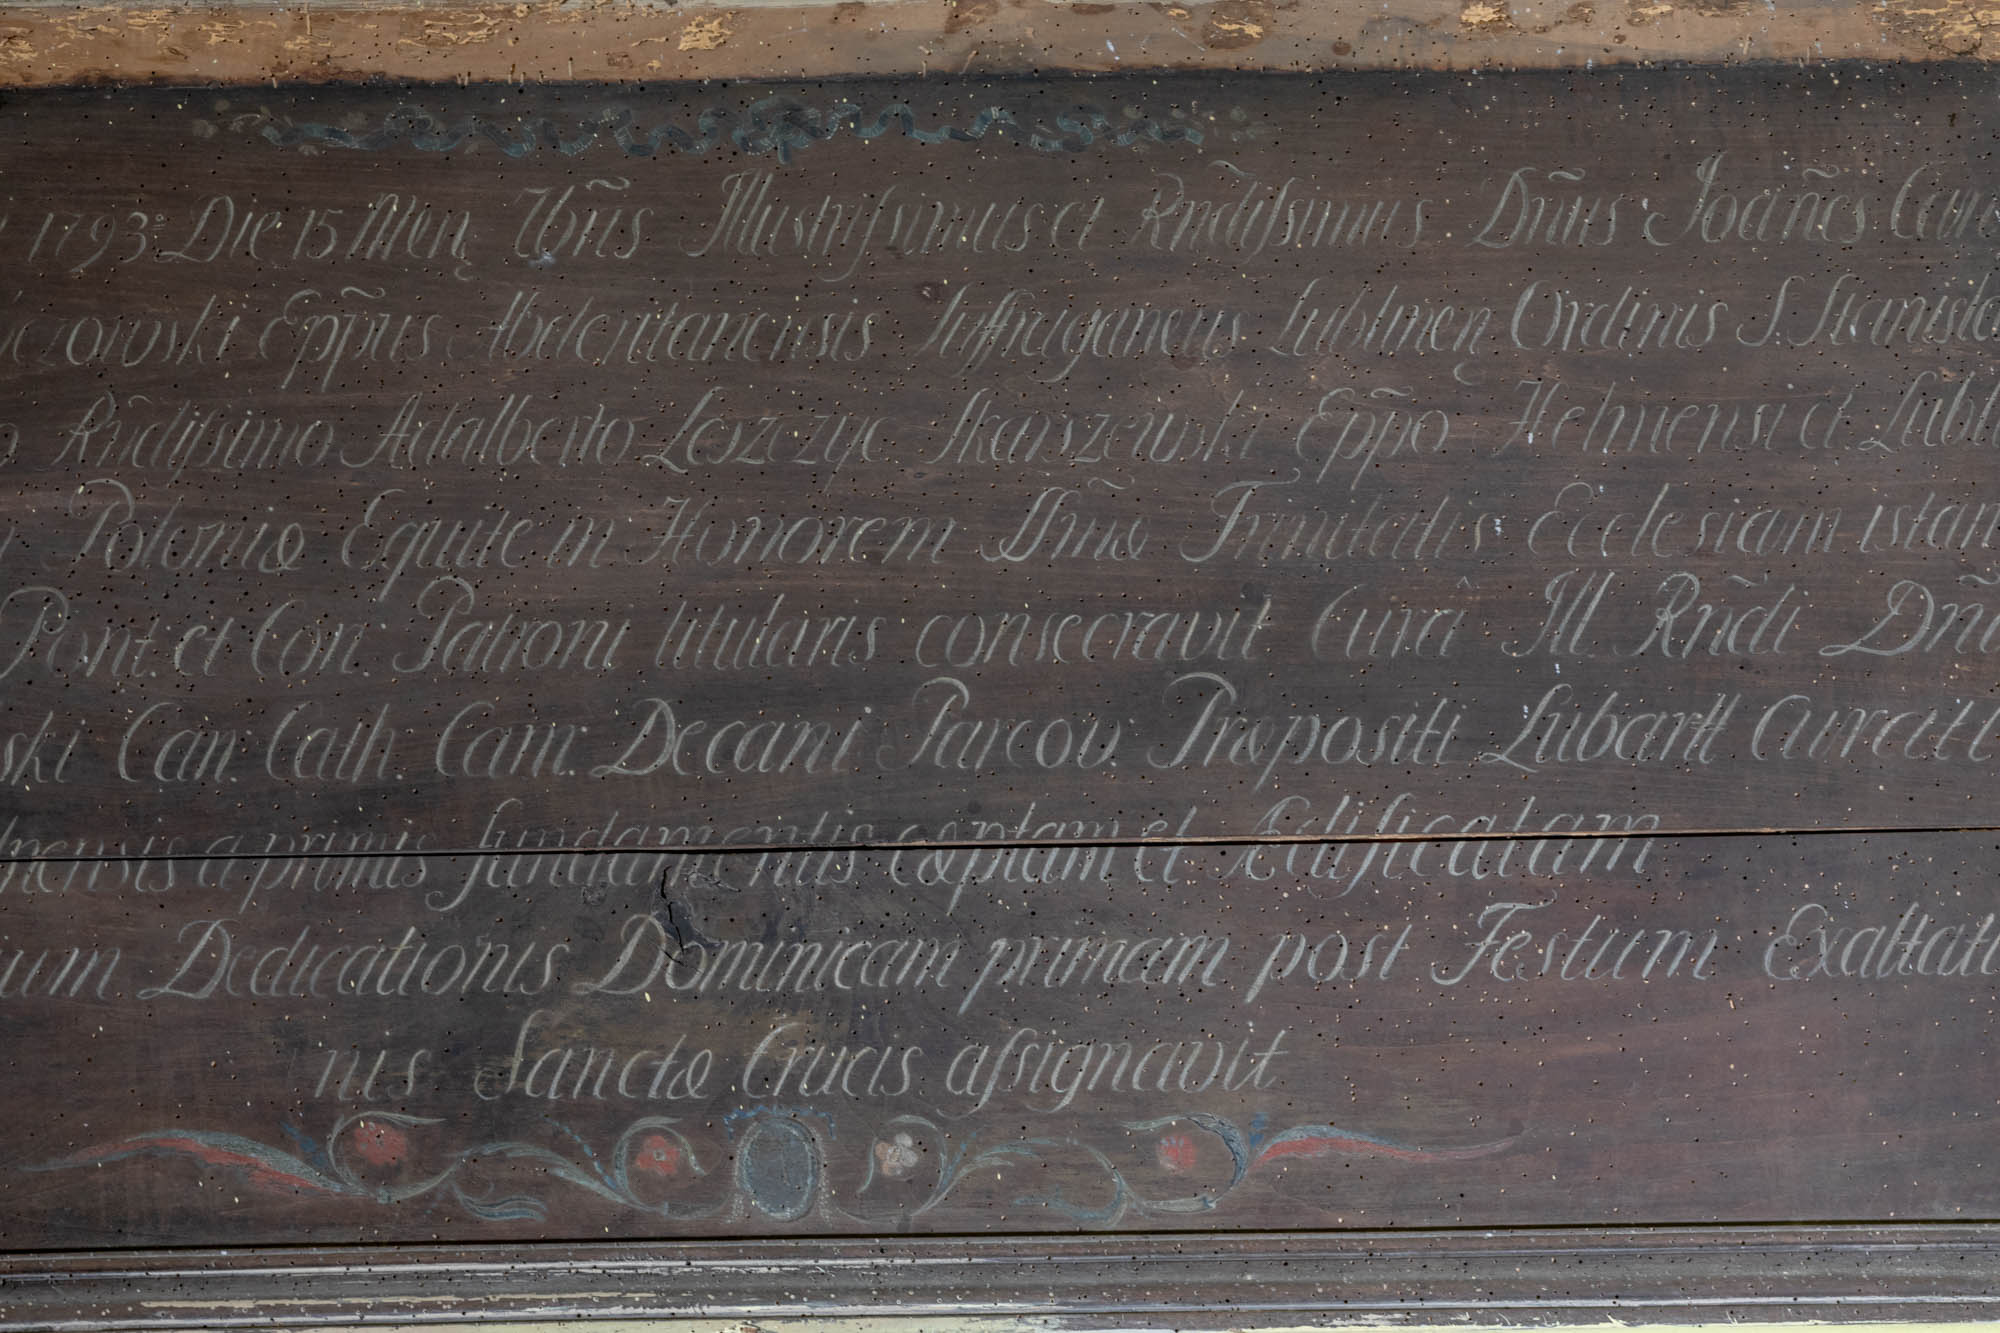 1793º Die 15 Menę 7br̃is Illustrissimus et Rñdissimus Dñus Joañes
czowski Epp̃us Abderitanensis Suffraganeus Lublinenę Ordinis S. Stanisla
o Rñdissimo Adalberto Leszczyc Skarszewski Epp̃o Helmensi et Lubli
Poloniæ Equite in Honorem Ssm̃æ Trinitatis Ecclesiam istam
Pont. et Con: Patroni titularis consecravit Curâ Ill. Rñdi Dñi
ski Can: Cath. Cam: Decani Parcov: Præpositi Lubartt Curati
nensis a primis fundamentis cæptam et Ædificatam
um Dedicationis Dominicam primam post Festum Exaltati
nis Sanctæ Crucis assignavit